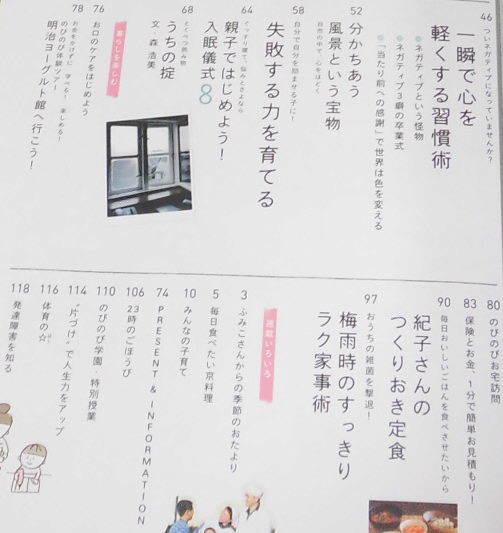 46
ついネガティブになっていませんか?
一瞬で心を
軽くする習慣術
ネガティブという怪物
ネガティブ3癖の卒業式
「当たり前への感謝」で世界は色を変える
52
分かちあう
風景という宝物
自然の中で、心をほどく
58
自分で自分を励ませる子に!
失敗する力を育てる
64
ぐっすり寝て、悩みとさよなら
親子ではじめよう!
入眠儀式8
68
とくべつ読み物
うちの掟
文・森 浩美
暮らしを楽しむ
76
お口のケアをはじめよう
78
お金をかけずに、学べる!楽しめる!
のびのび体験ツアー!
明治ヨーグルト館へ行こう!
80
のびのびお宅訪問
83
保険とお金、1分で簡単お見積もり!
90
毎日おいしいごはんを食べさせたいから
紀子さんの
つくりおき定食
97
おうちの雑菌を撃退!
梅雨時のすっきり
ラク家事術
連載いろいろ
3
ふみこさんからの季節のおたより
5
毎日食べたい京料理
10
みんなの子育て
74
PRESENT & INFORMATION
106
23時のごほうび
110
のびのび学園・特別授業
114
"片づけ"で人生力をアップ
116
体育の☆
118
発達障害を知る